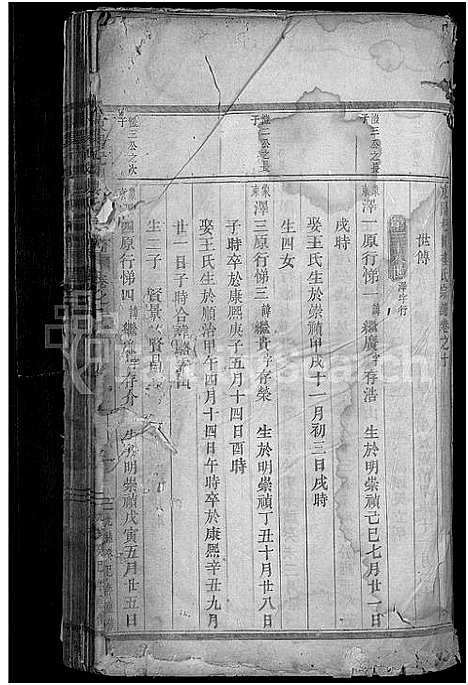 氏宗譜卷之十
世傳
澤字行
澄三公之長子
澤一原行悌一 諱繼廣字存浩 生於明崇禎己巳七月廿一日
戌時
娶王氏生於崇禎甲戌十一月初三日戌時
生四女
澄二公之長子
澤三原行悌三 諱繼貴字存榮 生於明崇禎丁丑十月廿八日
子時卒於康熙庚子五月十四日酉時
娶王氏生於順治甲午四月十四日午時卒於康熙辛丑九月
廿一日子時合葬
生二子 賢景 賢昌
澄三公之次子
四原行悌四 諱繼 字存介 生於明崇禎戊寅五月廿五日